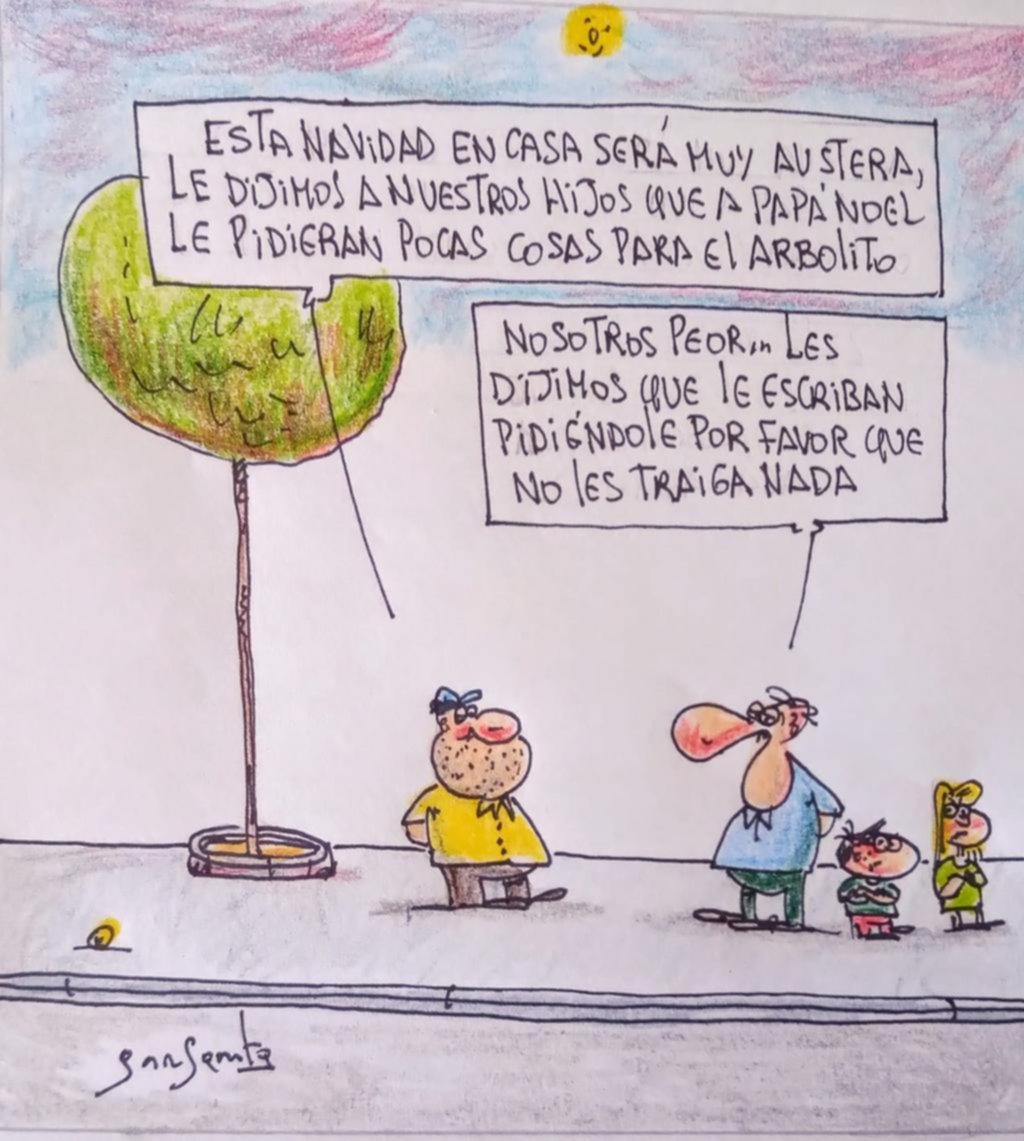 ESTA NAVIDAD EN CASA SERÁ MUY AUSTERA,
LE DIJIMOS A NUESTROS HIJOS QUE A PAPÁ NOEL
LE PIDIERAN POCAS COSAS PARA El ARBOLITO
NOSOTROS PEOR... LES
DIJIMOS QUE lE ESCRIBAN
PIDIÉNDOlE POR FAVOR QUE
NO lES TRAIGA NADA